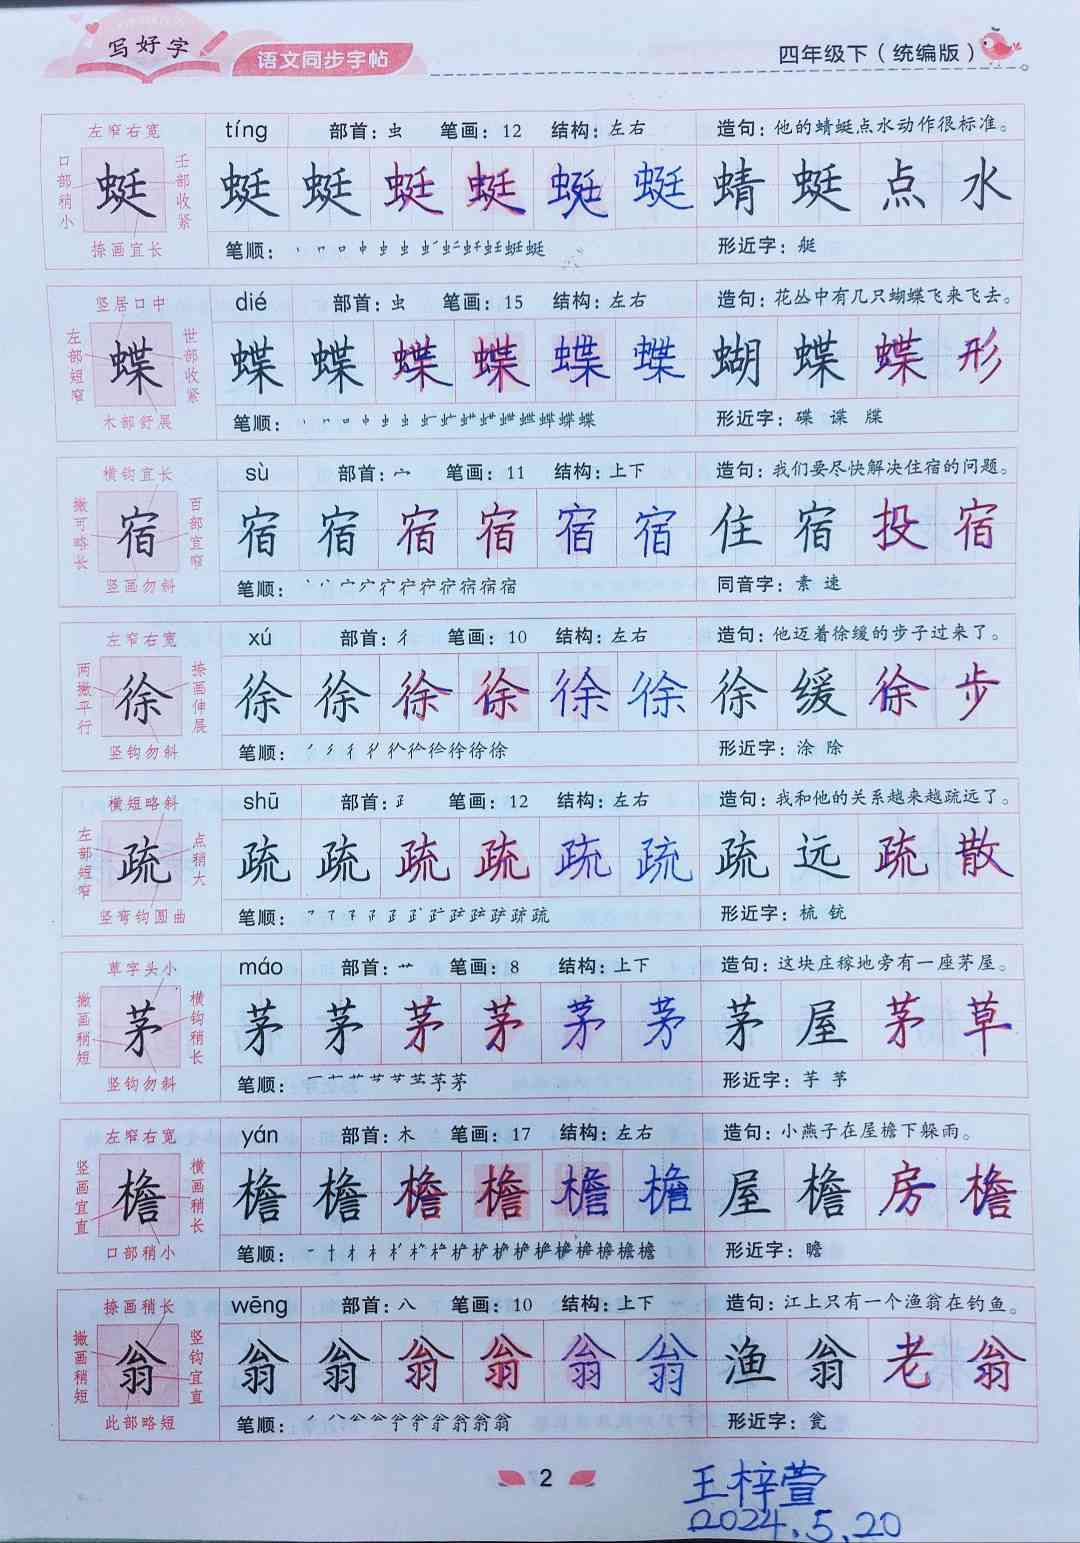 写好字
语文同步字帖
四年级下（统编版）
左窄右宽
口部稍小
蜓
壬部收紧
捺画宜长
tíng 部首：虫 笔画：12 结构：左右 造句：他的蜻蜓点水动作很标准。
蜓 蜓 蜓 蜓 蜓 蜓 蜻 蜓 点 水
笔顺： 形近字：艇
竖居口中
左部短窄
蝶
世部收紧
木部舒展
dié 部首：虫 笔画：15 结构：左右 造句：花丛中有几只蝴蝶飞来飞去。
蝶 蝶 蝶 蝶 蝶 蝶 蝴 蝶 蝶 形
笔顺： 形近字：碟 谍 牒
横钩宜长
撇可略长
宿
百部宜窄
竖画勿斜
sù 部首：宀 笔画：11 结构：上下 造句：我们要尽快解决住宿的问题。
宿 宿 宿 宿 宿 宿 住 宿 投 宿
笔顺： 同音字：素 速
左窄右宽
两撇平行
徐
捺画伸展
竖钩勿斜
xú 部首：彳 笔画：10 结构：左右 造句：他迈着徐缓的步子过来了。
徐 徐 徐 徐 徐 徐 徐 缓 徐 步
笔顺： 形近字：涂 除
横短略斜
左部短窄
疏
点稍大
竖弯钩圆曲
shū 部首：⺪ 笔画：12 结构：左右 造句：我和他的关系越来越疏远了。
疏 疏 疏 疏 疏 疏 疏 远 疏 散
笔顺： 形近字：梳 铳
草字头小
撇画稍短
茅
横钩稍长
竖钩勿斜
máo 部首：艹 笔画：8 结构：上下 造句：这块庄稼地旁有一座茅屋。
茅 茅 茅 茅 茅 茅 茅 屋 茅 草
笔顺： 形近字：芋 芧
左窄右宽
竖画宜直
檐
横画稍长
口部稍小
yán 部首：木 笔画：17 结构：左右 造句：小燕子在屋檐下躲雨。
檐 檐 檐 檐 檐 檐 屋 檐 房 檐
笔顺： 形近字：瞻
捺画稍长
撇画稍短
翁
竖钩宜直
此部略短
wēng 部首：八 笔画：10 结构：上下 造句：江上只有一个渔翁在钓鱼。
翁 翁 翁 翁 翁 翁 渔 翁 老 翁
笔顺： 形近字：瓮
2
王梓萱
2024.5.20